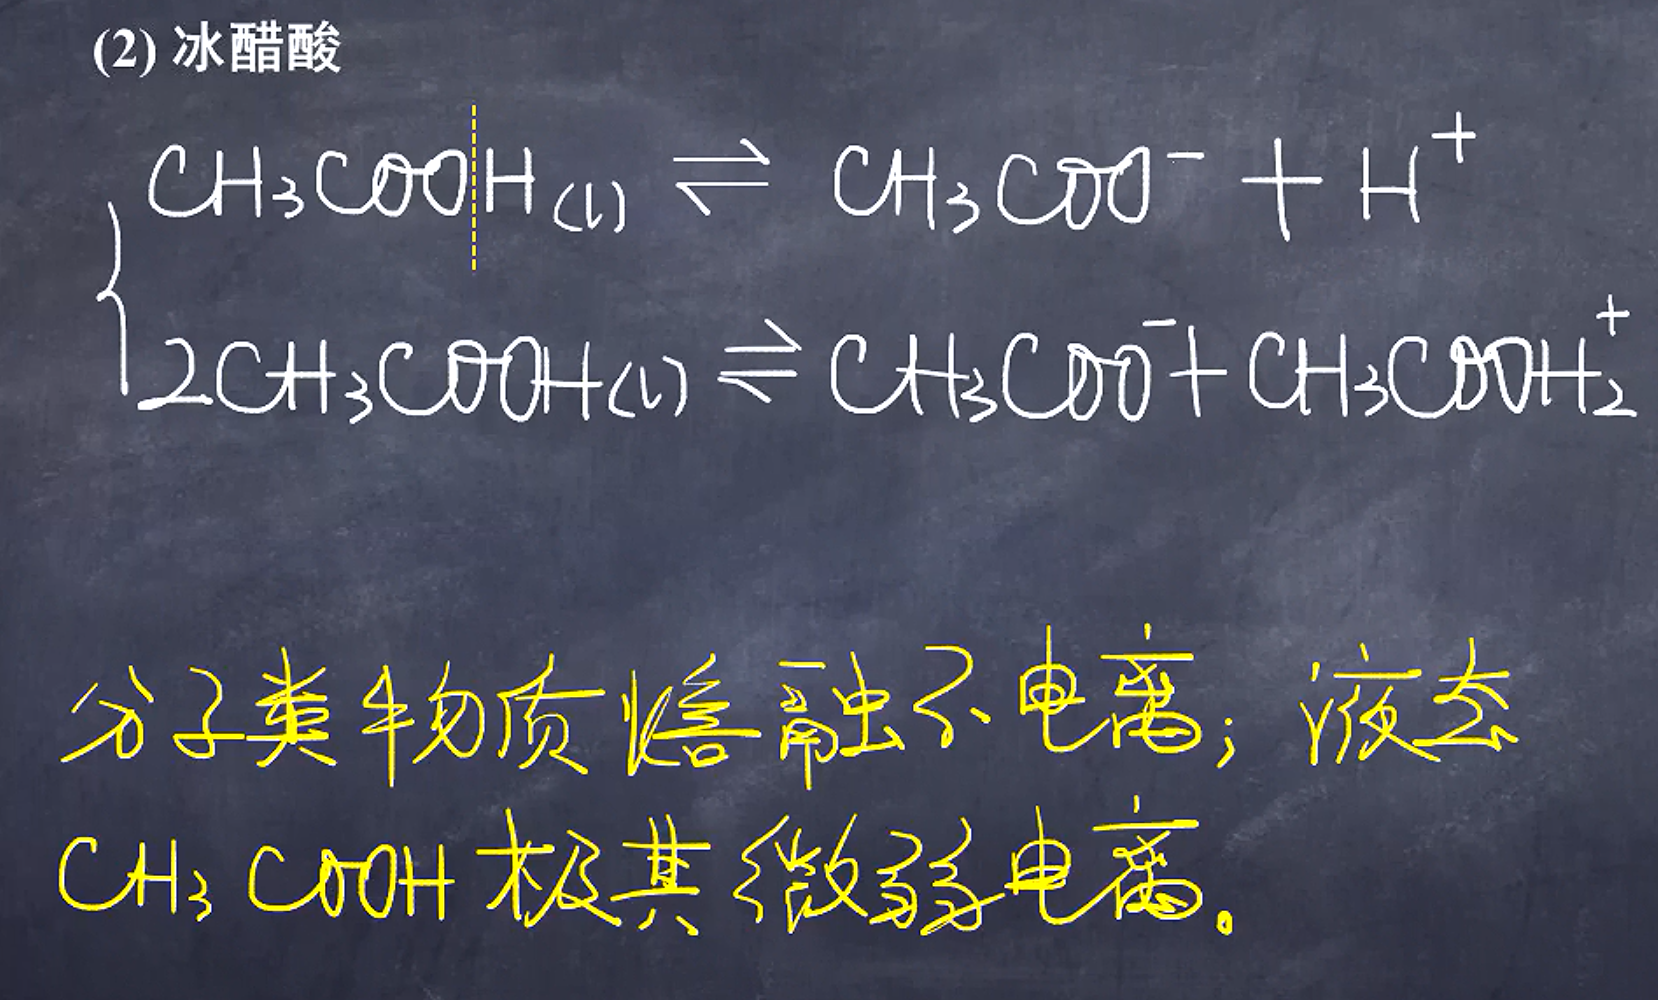 (2) 冰醋酸
CH₃COOH(l) ⇌ CH₃COO⁻ + H⁺
2CH₃COOH(l) ⇌ CH₃COO⁻ + CH₃COOH₂⁺
分子类物质熔融不电离；液态
CH₃COOH极其微弱电离。